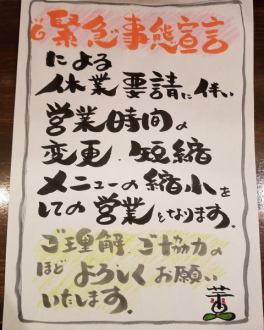 緊急事態宣言
による
休業要請に伴い
営業時間の
変更・短縮
メニューの縮小を
しての営業となります。
ご理解、ご協力の
ほどよろしくお願い
いたします。